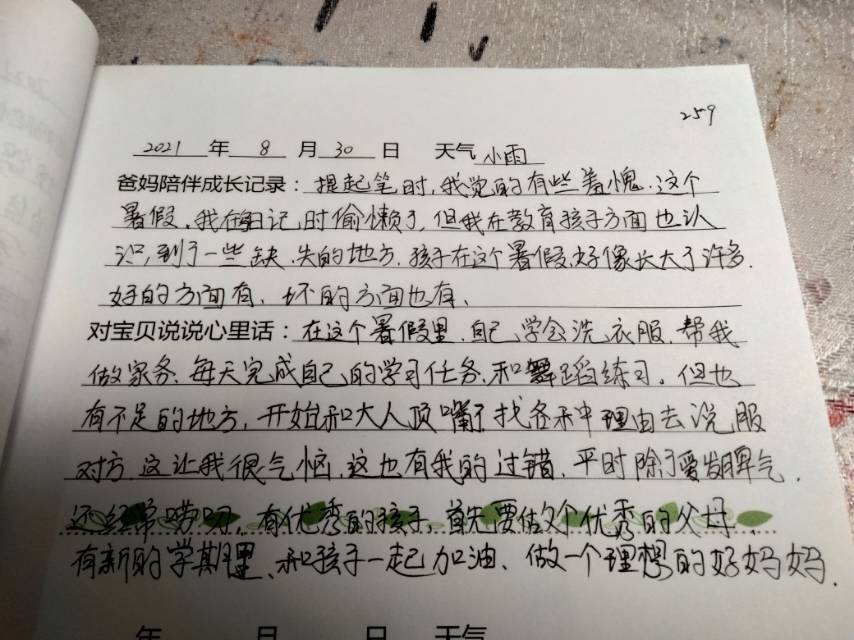 259
2021 年 8 月 30 日 天气 小雨
爸妈陪伴成长记录：提起笔时，我觉的有些羞愧．这个
暑假．我在日记，时偷懒了，但我在教育孩子方面也认
识，到了一些缺．失的地方．孩子在这个暑假．好像长大了许多．
好的方面有、坏的方面也有、
对宝贝说说心里话：在这个暑假里．自己学会洗衣服．帮我
做家务．每天完成自己的学习任务．和舞蹈练习．但也
有不足的地方，开始和大人顶嘴了找各种理由去说服
对方．这让我很气恼．这也有我的过错．平时除了爱发脾气．
还经常唠叨．有优秀的孩子，首先要做个优秀的父母．
有新的学期里、和孩子一起加油、做一个理想的好妈妈．
年 月 日 天气